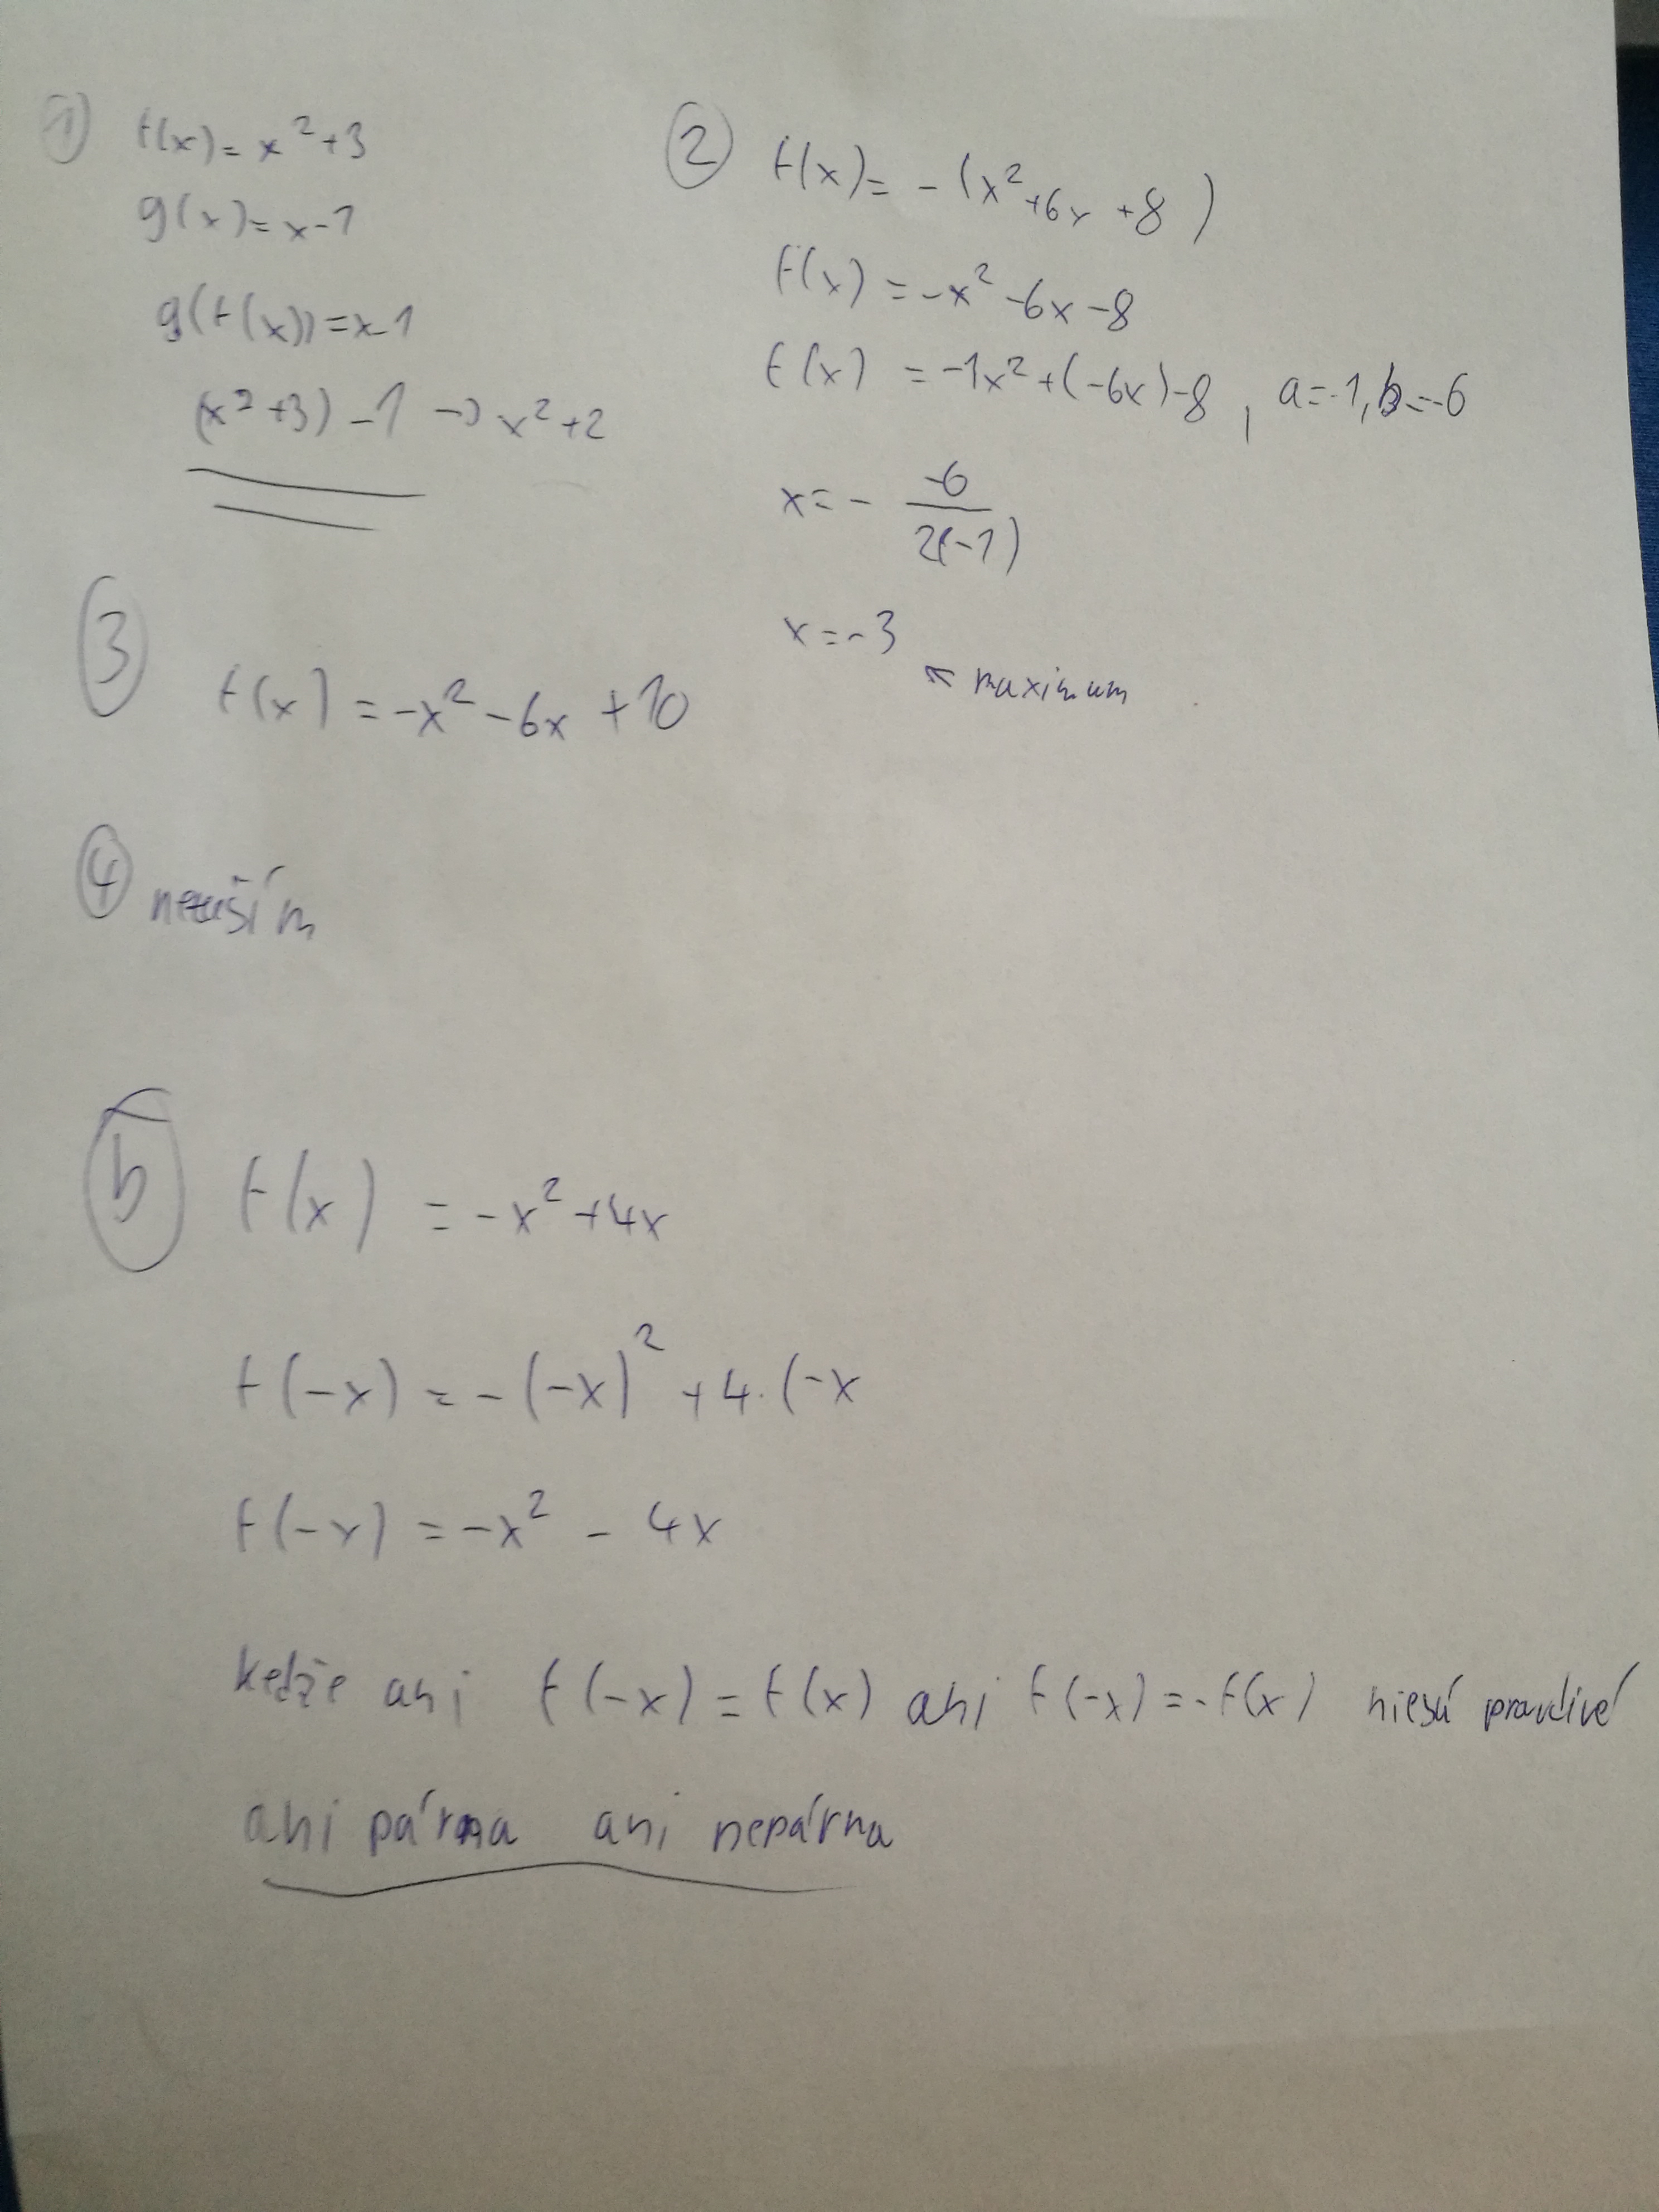 ① f(x)= x²+3
g(x)= x-1
g(f(x))=x-1
(x²+3)-1 → x²+2
② f(x)= -(x²+6x+8)
f(x)=-x²-6x-8
f(x) =-1x²+(-6x)-8, a=-1, b=-6
x= - -6/2(-1)
x=-3
↖ maximum
③
f(x)=-x²-6x+10
④
⑤ f(x) = -x²+4x
f(-x) = -(-x)²+4.(-x
f(-x) = -x² - 4x
kedže ani f(-x)=f(x) ani f(-x)=-f(x) niesú pravdivé
ani párna ani nepárna